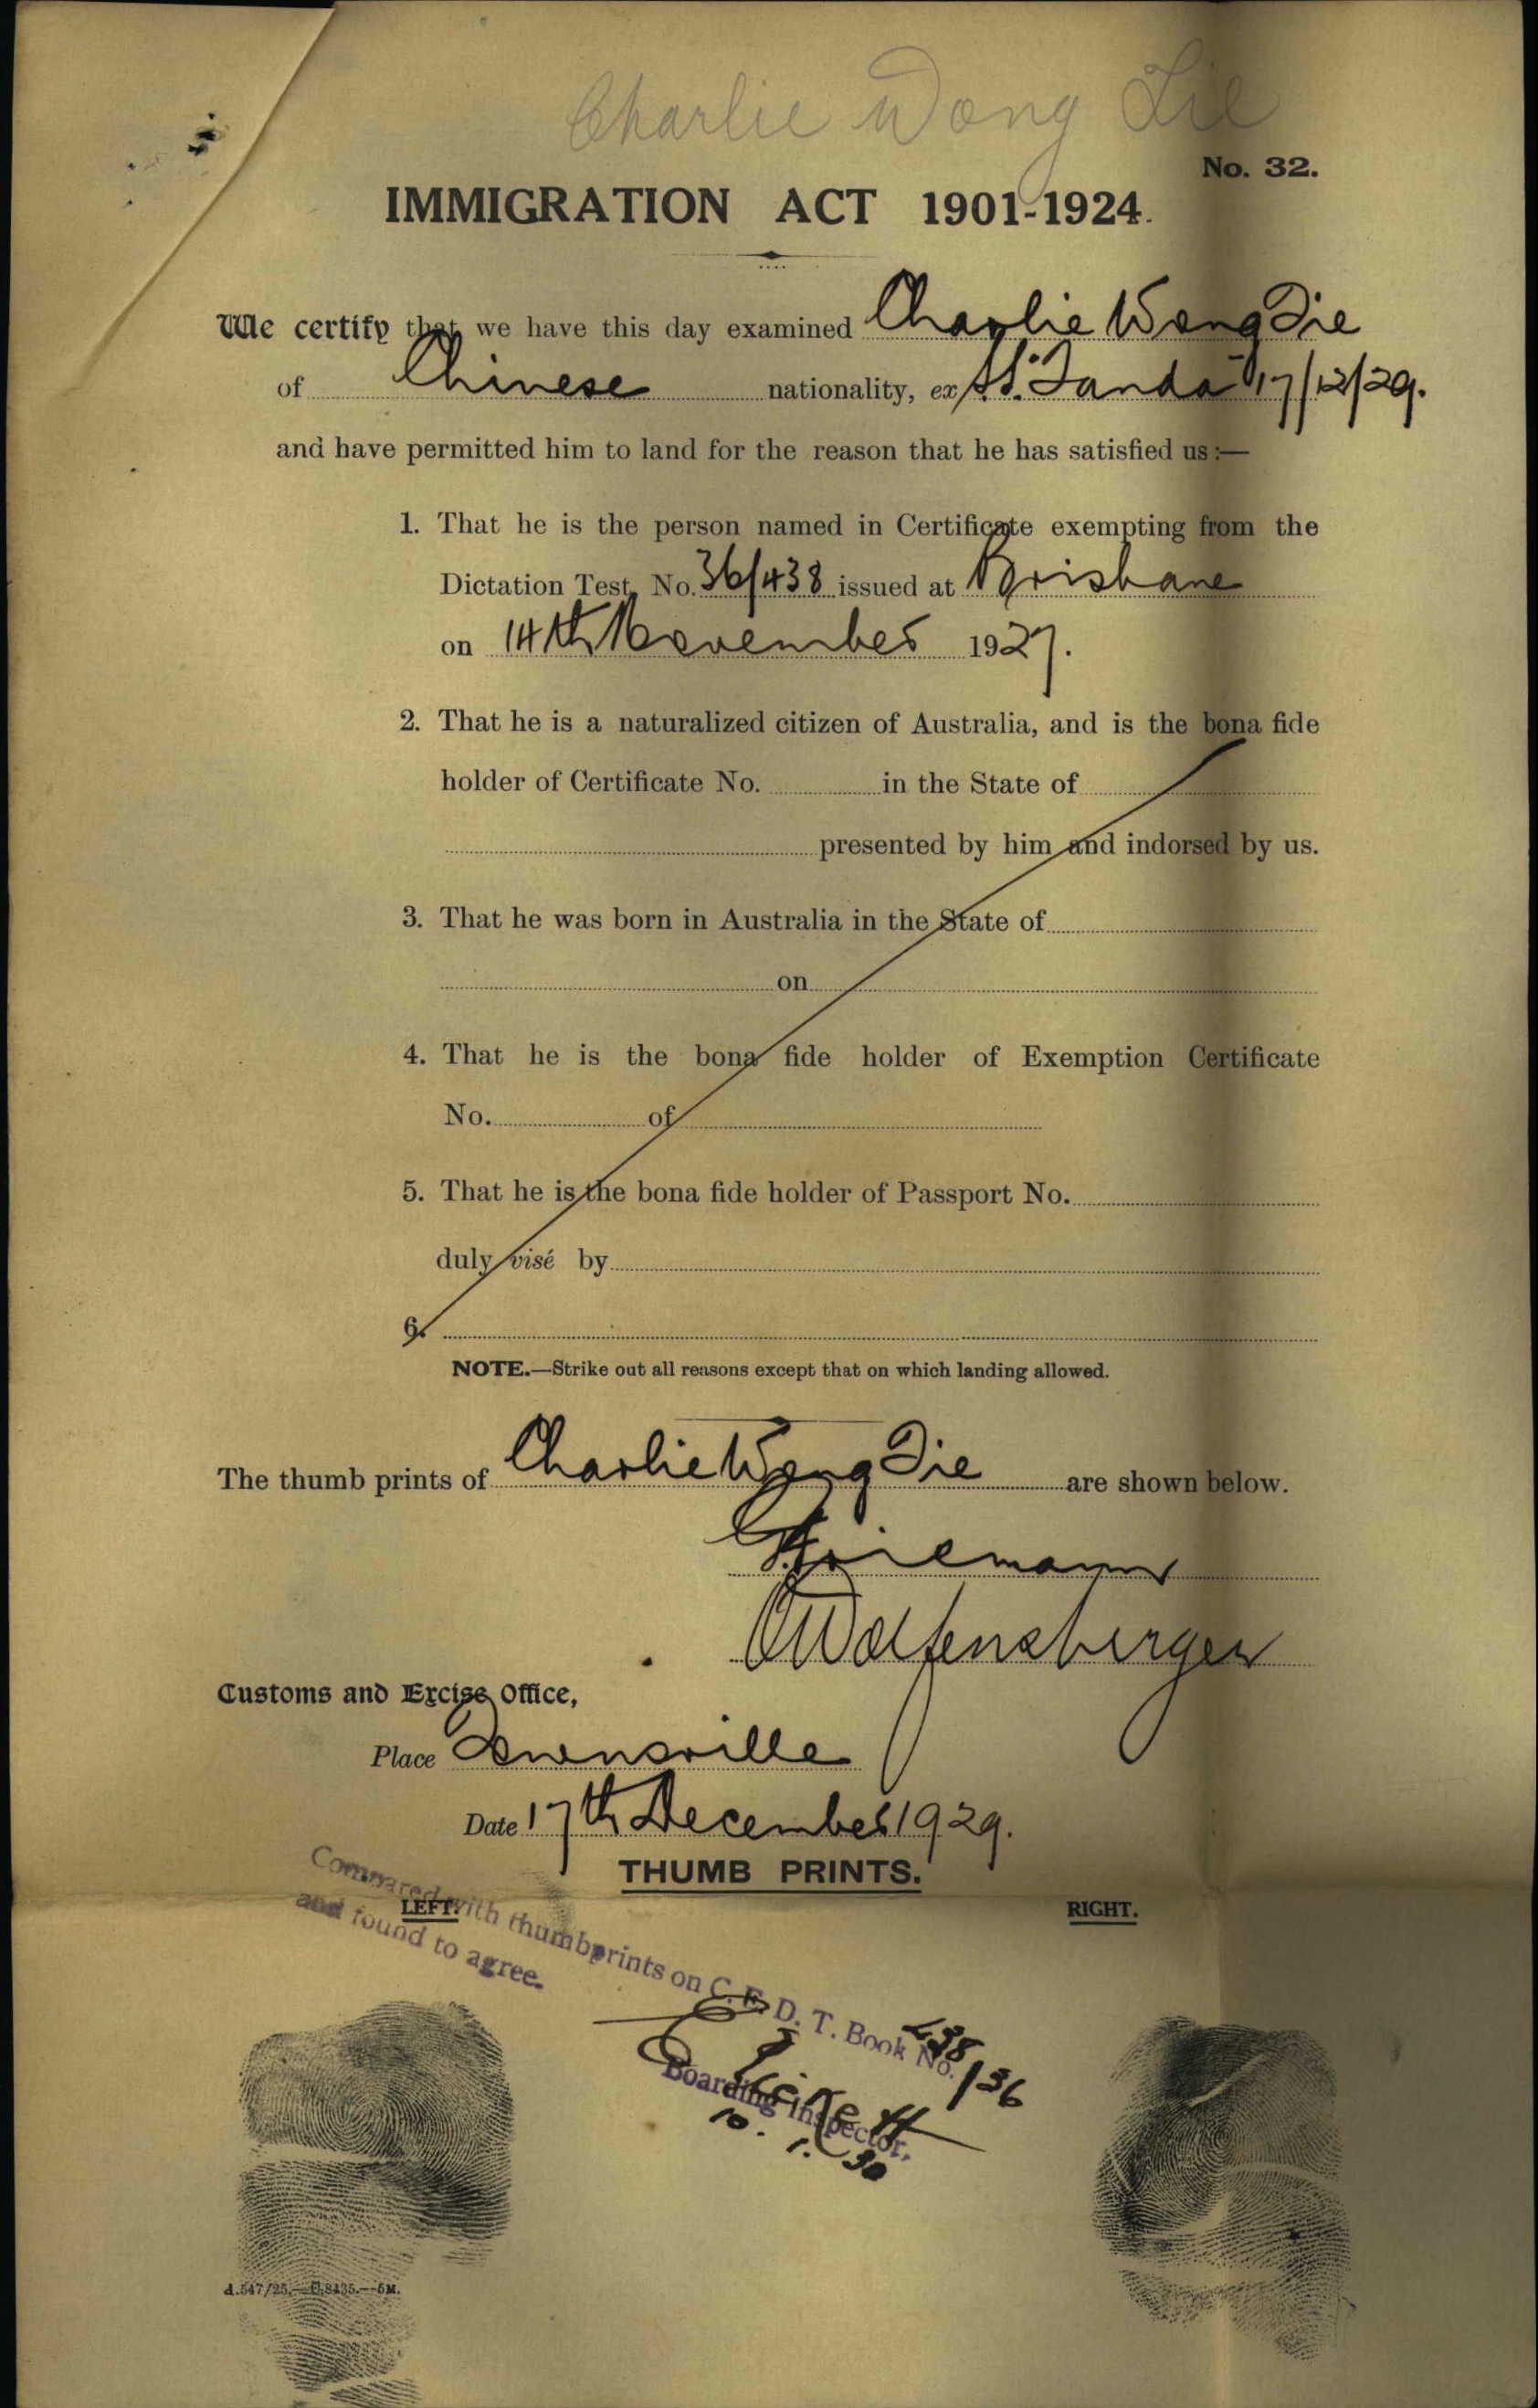 Charlie Wong Lie
No. 32.
IMMIGRATION ACT 1901-1924.
We certify that we have this day examined Charlie Wong Die
of Chinese nationality, ex S.S. Tanda 17/12/29.
and have permitted him to land for the reason that he has satisfied us:—
1. That he is the person named in Certificate exempting from the
Dictation Test, No. 36/438 issued at Brisbane
on 14th November 1927.
2. That he is a naturalized citizen of Australia, and is the bona fide
holder of Certificate No. in the State of
presented by him and indorsed by us.
3. That he was born in Australia in the State of
on
4. That he is the bona fide holder of Exemption Certificate
No. of
5. That he is the bona fide holder of Passport No.
duly visé by
6.
NOTE.—Strike out all reasons except that on which landing allowed.
The thumb prints of Charlie Wong Die are shown below.
Wolfensberger
Customs and Excise Office,
Place Townsville
Date 17th December 1929.
THUMB PRINTS.
LEFT.
RIGHT.
Compared with thumbprints on C. E. D. T. Book No. 438/36
and found to agree.
Boarding Inspector.
10. 1. 30
A.547/25.—C.8435.—5M.